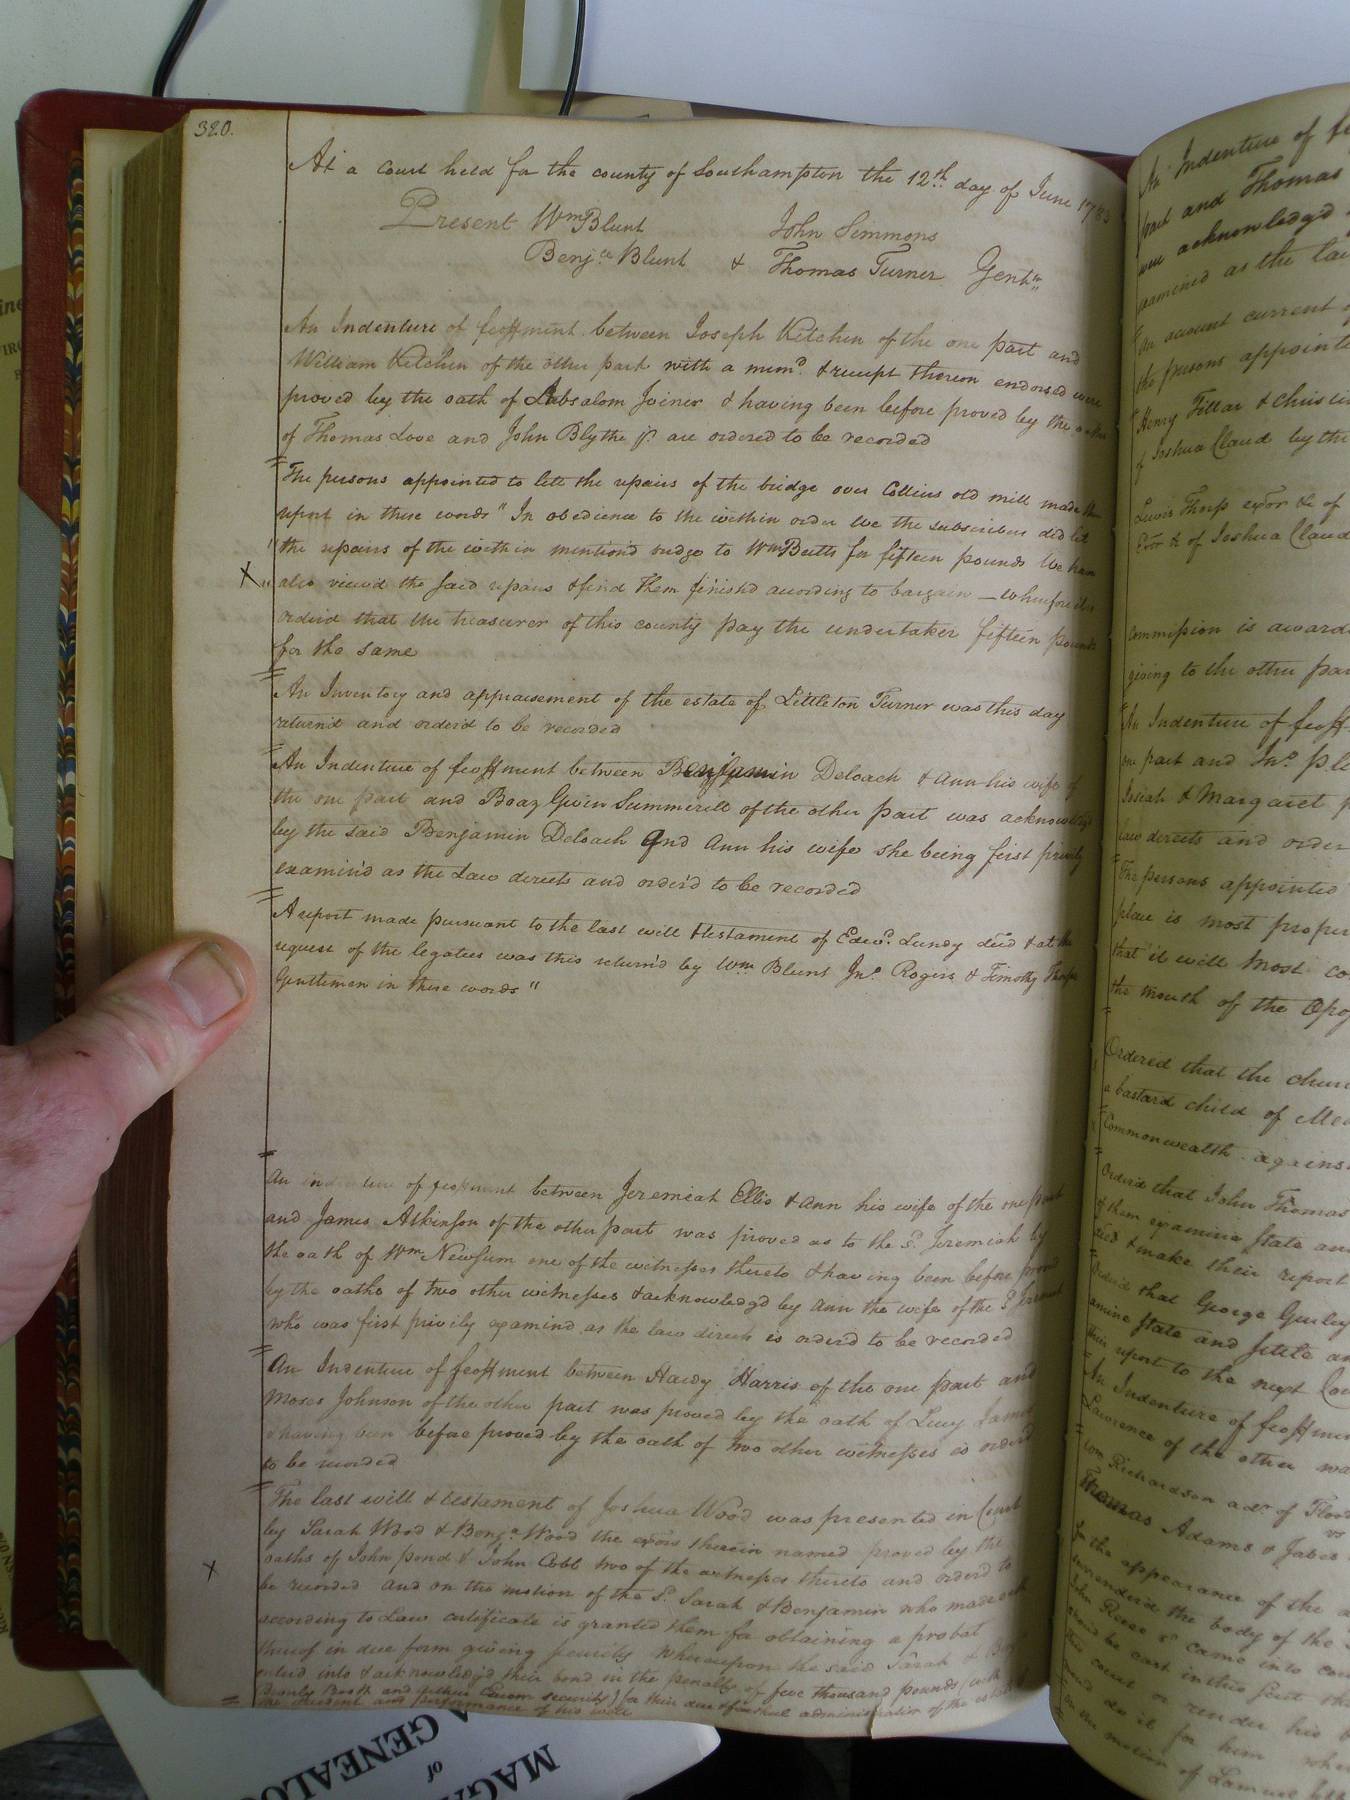 320.
At a court held for the county of Southampton the 12th day of June 1783
Present Wm Blunt John Simmons
Benja Blunt & Thomas Turner Gentn
An Indenture of feoffment between Joseph Kitchen of the one part and
William Kitchen of the other part with a memd. & receipt thereon endorsed were
proved by the oath of Absalom Joiner & having been before proved by the oaths
of Thomas Love and John Blythe jr. are ordered to be recorded
The persons appointed to lett the repairs of the bridge over Collins old mill made their
report in these words "In obedience to the within order We the subscribers did let
"the repairs of the within mention'd bridge to Wm Beitts for fifteen pounds We have
X "also view'd the said repairs & find them finish'd according to bargain — wherefore it is
order'd that the treasurer of this county pay the undertaker fifteen pounds
for the same
An Inventory and appraisement of the estate of Littleton Turner was this day
return'd and order'd to be recorded
An Indenture of feoffment between Benjamin Deloach & Ann his wife of
the one part and Boaz Gwin Summerell of the other part was acknowledg'd
by the said Benjamin Deloach and Ann his wife she being first privily
examin'd as the Law directs and order'd to be recorded
A report made pursuant to the last will & testament of Edwd. Lundy dec'd & at the
request of the legatees was this return'd by Wm Blunt Jno. Rogers & Timothy Thorpe
Gentlemen in these words "
An indenture of feoffment between Jeremiah Ellis & Ann his wife of the one part
and James Atkinson of the other part was proved as to the sd. Jeremiah by
the oath of Wm Newsum one of the witnesses thereto & having been before proved
by the oaths of two other witnesses & acknowledg'd by Ann the wife of the sd. Jeremiah
who was first privily examind as the law directs is order'd to be recorded
An Indenture of feoffment between Hardy Harris of the one part and
Moses Johnson of the other part was proved by the oath of Lucy James
& having been before proved by the oath of two other witnesses is order'd
to be recorded
The last will & testament of Joshua Wood was presented in Court
by Sarah Wood & Benja Wood the exors therein named proved by the
X oaths of John Pond & John Cobb two of the witnesses thereto and order'd to
be recorded and on the motion of the sd. Sarah & Benjamin who made oath
according to Law certificate is granted them for obtaining a probat
thereof in due form giving security whereupon the said Sarah & Benja
enter'd into & acknowledg'd their bond in the penalty of five thousand pounds (with
Booth and Arthur security) for their due & faithful administration of the estate of
the decedent and performance of his will
An Indenture of
part and Thomas
were acknowledg'd
examined as the law
An account current
the persons appointed
Henry Fillar &
of Joshua Claud by the
Lewis Thorp exor &c of
Exor &c of Joshua Claud
Commission is award
giving to the other
An Indenture of feoff
one part and Jno.
Josiah & Margaret
law directs and order
The persons appointed
place is most proper
that it will most
the mouth of the
Ordered that the
a bastard child of
Commonwealth against
Order'd that John Thomas
of them examine state and
& make their report
Order'd that George Gurley
examine state and settle
their report to the next
An Indenture of feoffment
Lawrence of the other
Wm Richardson adr. of
vs
Thomas Adams & Jabes
for the appearance of the
surrender'd the body of the
John Reese sd. came into
should be cast in this suit
this court or render his
would do it for him
On the motion of Samuel
MAG
of
A GENEALO